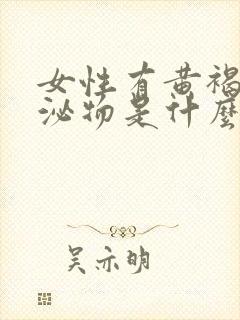 女性有黄褐
泌物是什麼
吴亦明